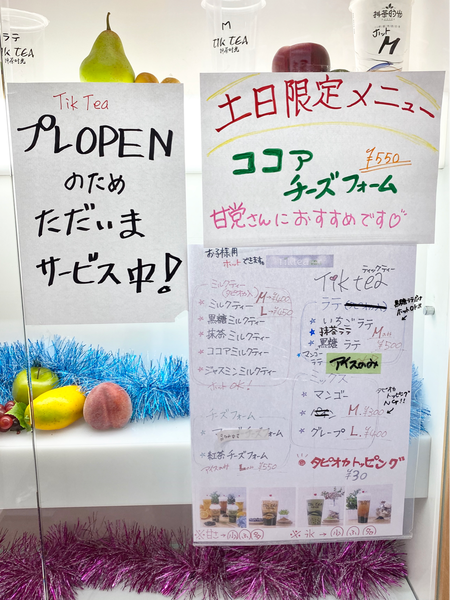 ラテ
TIK TEA
M
TIK TEA
抹茶時光
ホット
M
Tik Tea
プレOPEN
のため
ただいま
サービス中!
土日限定メニュー
ココア ¥550
チーズフォーム
甘党さんにおすすめです♡
お子様用
ホットできます。
ミルクティー
(タピオカ入) M→¥400
★ミルクティー L→¥450
★黒糖ミルクティー
★抹茶ミルクティー
★ココアミルクティー
★ジャスミンミルクティー
ホットOK!
チーズフォーム
チーズフォーム
★紅茶チーズフォーム
L ¥550
ティックティー
Tik tea
ラテ
★いちごラテ
★抹茶ラテ Mのみ
★黒糖ラテ ¥500
★マンゴーラテ
アイスのみ
黒糖ラテのみ
ホットOK
ミックス
★マンゴー
M.¥300
★グレープ L.¥400
タピオカ
トッピング
NG!!
タピオカトッピング
¥30
※甘さ→小ふ多
※氷→小ふ多